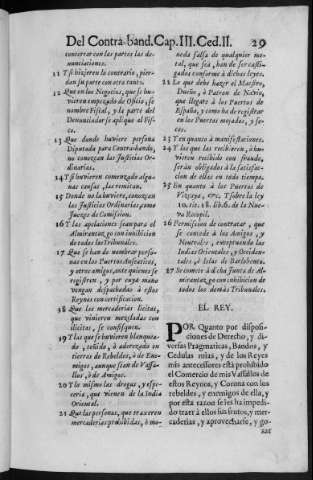 Del Contra-band. Cap. III. Ced. II. 29
concertar con las partes las denunciaciones.
11 Y si hizieren lo contrario, pierdan su parte con otro tanto.
12 Que en los Negocios, que se huvieren empeçado de Oficio, se
nombre Fiscal, y la parte del
Denunciador se aplique al Fisco.
13 Que donde huviere persona
Diputada para Contra-bando,
no conozcan las Justicias Ordinarias.
14 Y si huvieren començado algunas causas, las remitan.
15 Donde no la huviere, conozcan
las Justicias Ordinarias, como
Juezes de Comission.
16 Y las apelaciones sean para el
Almirantazgo con inhibicion
de todos los Tribunales.
17 Que se han de nombrar personas en los Puertos
y otros amigos, ante quienes se
registren, y por cuya mano
vengan despachadas à estos
Reynos con certificacion.
18 Que las mercaderias licitas,
que vinieren mezcladas con
ilicitas, se confisquen.
19 Y las que se huvieren blanqueado, teñido, ò adereçado en
tierras de Rebeldes, ò de Enemigos, aunque sean de Vassallos, ò de Amigos.
20 Y lo mismo las drogas, y especeria, que vienen de la India
Oriental.
21 Que las personas, que traxeren
mercaderias prohibidas, ò moneda
neda falsa de qualquier metal, que sea, han de ser castigados conforme à dichas leyes.
22 Lo que debe hazer el Maestre,
Dueño, ò Patron de Navio,
que llegare à los Puertos de
España, y como ha de registrar
en los Puertos mojados, y secos.
23 Y en quanto à manifestaciones.
24 Y los que las recibieren, ò huvieren recibido con fraude,
serán obligados à la satisfacion de ellas en todo tiempo.
25 En quanto à los Puertos de
Vizcaya, &c. Y sobre la ley
10. tit. 18. lib. 6. de la Nueva Recopil.
26 Permission de contratar, que
se concede à los Amigos, y
Neutrales, exceptuando las
Indias Orientales, y Occidentales, è Islas de Barlobento.
27 Se comete à dicha Junta de Almirantazgo con inhibicion de
todos los demás Tribunales.
EL REY.
POR Quanto por disposiciones de Derecho, y diversas Pragmaticas, Bandos, y
Cedulas mias, y de los Reyes
mis antecessores está prohibido
el Comercio de mis Vassallos de
estos Reynos, y Corona con los
rebeldes, y enemigos de ella, y
por esta razon se les ha impedido traer à ellos sus frutos, y mercaderias, y aprovecharse, y go-
zar